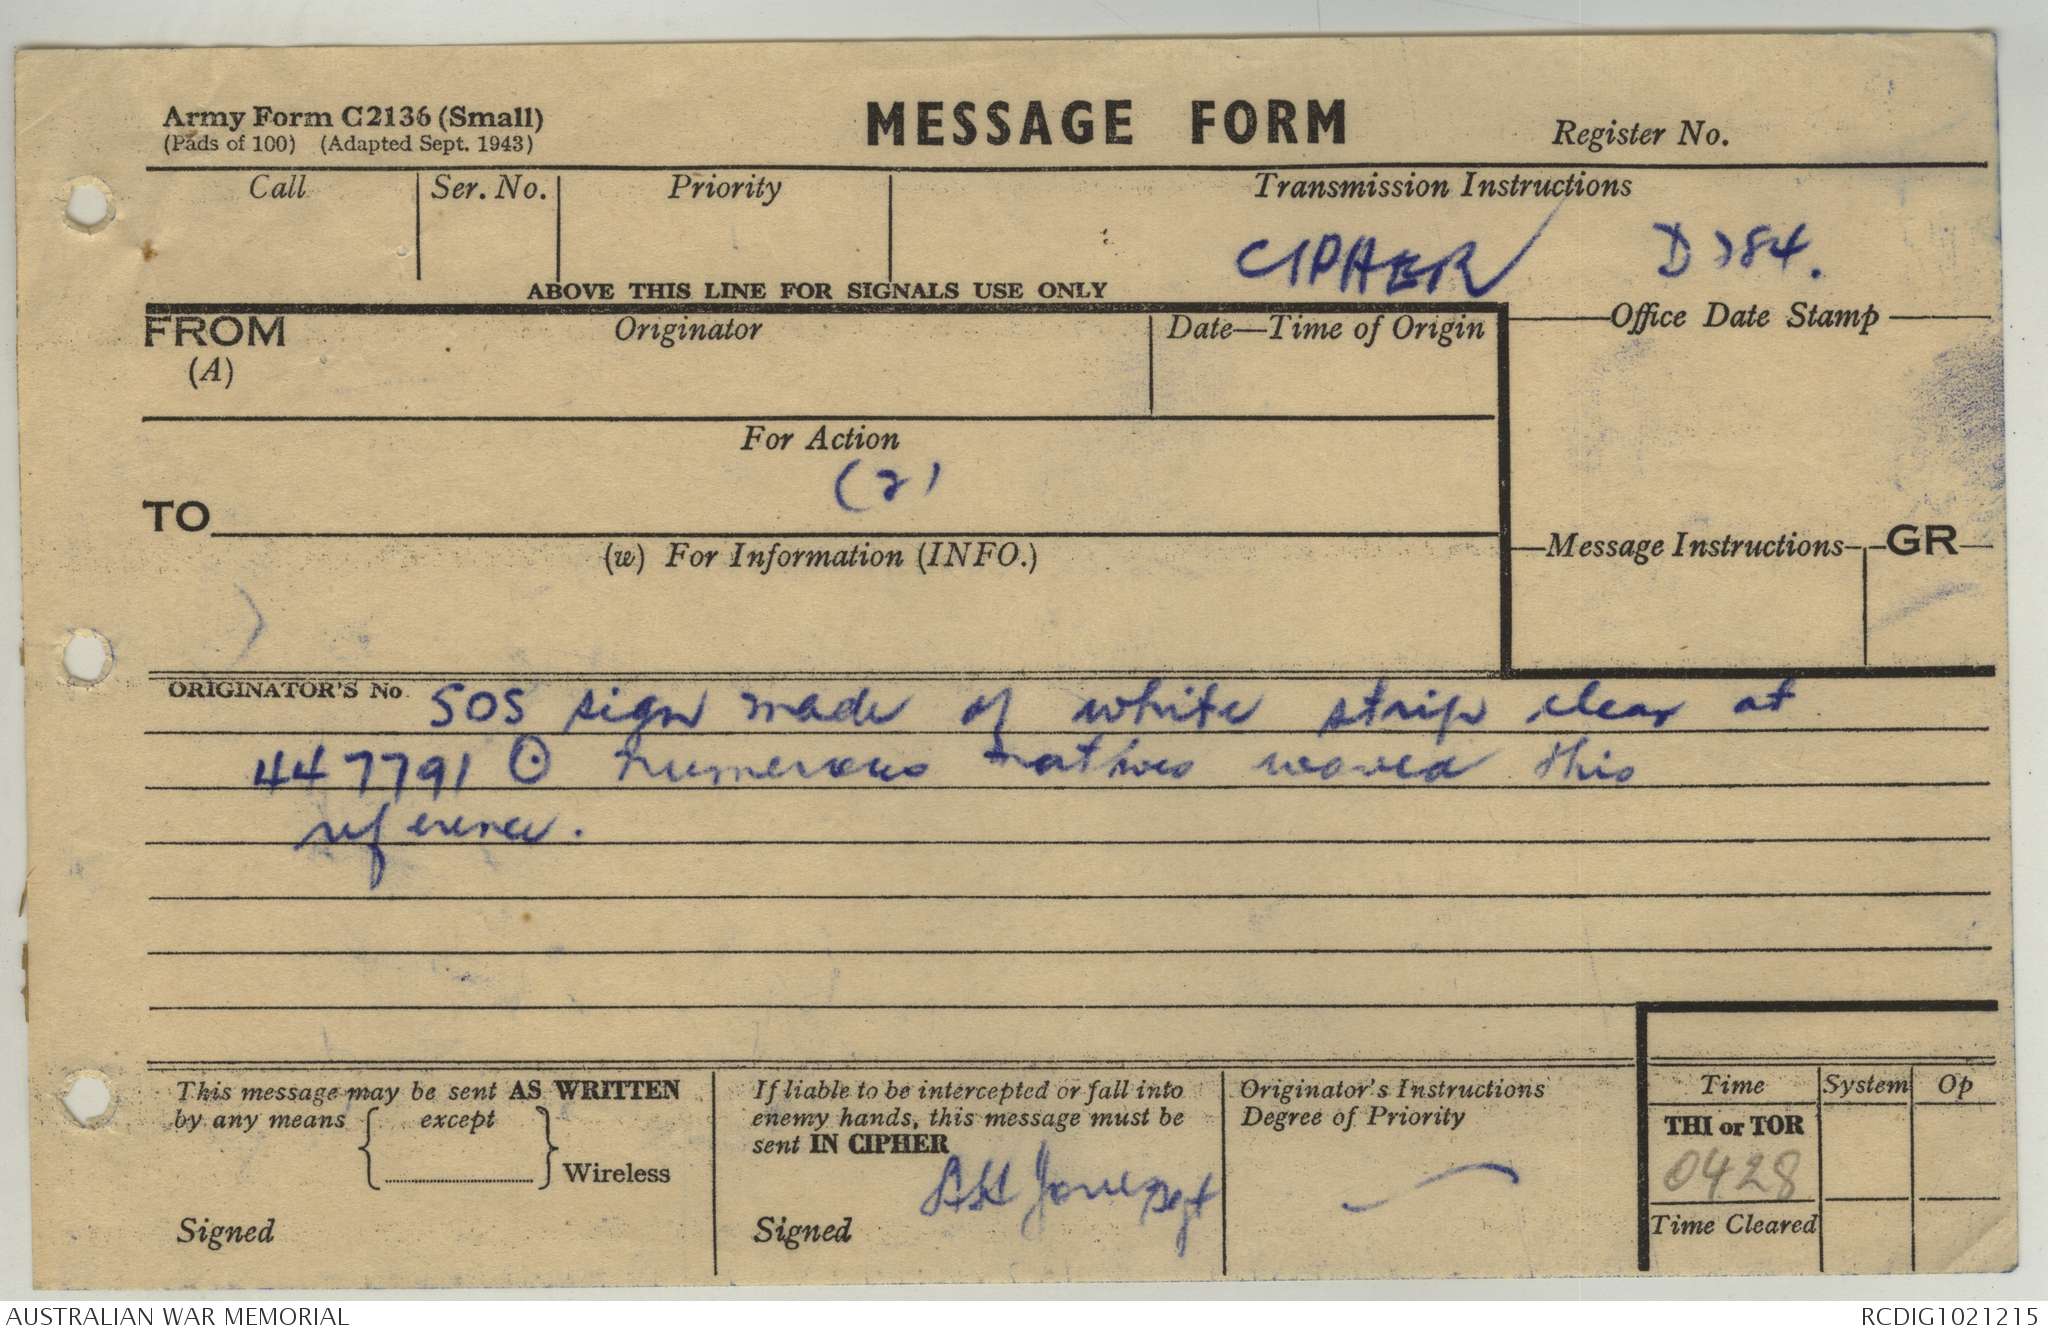 Army Form C2136 (Small)
(Pads of 100) (Adapted Sept. 1943)
MESSAGE FORM
Register No.
Call
Ser. No.
Priority
Transmission Instructions
CIPHER
D 284.
ABOVE THIS LINE FOR SIGNALS USE ONLY
FROM
(A)
Originator
Date—Time of Origin
Office Date Stamp
For Action
(2)
TO
(w) For Information (INFO.)
Message Instructions
GR
ORIGINATOR'S No
SOS sign made of white strip clear at
447791 ⊙ numerous natives waved this
reference.
This message may be sent AS WRITTEN
by any means { except } Wireless
Signed
If liable to be intercepted or fall into
enemy hands, this message must be
sent IN CIPHER
Signed
Jones
Originator's Instructions
Degree of Priority
Time
System
Op
THI or TOR
0428
Time Cleared
AUSTRALIAN WAR MEMORIAL
RCDIG1021215